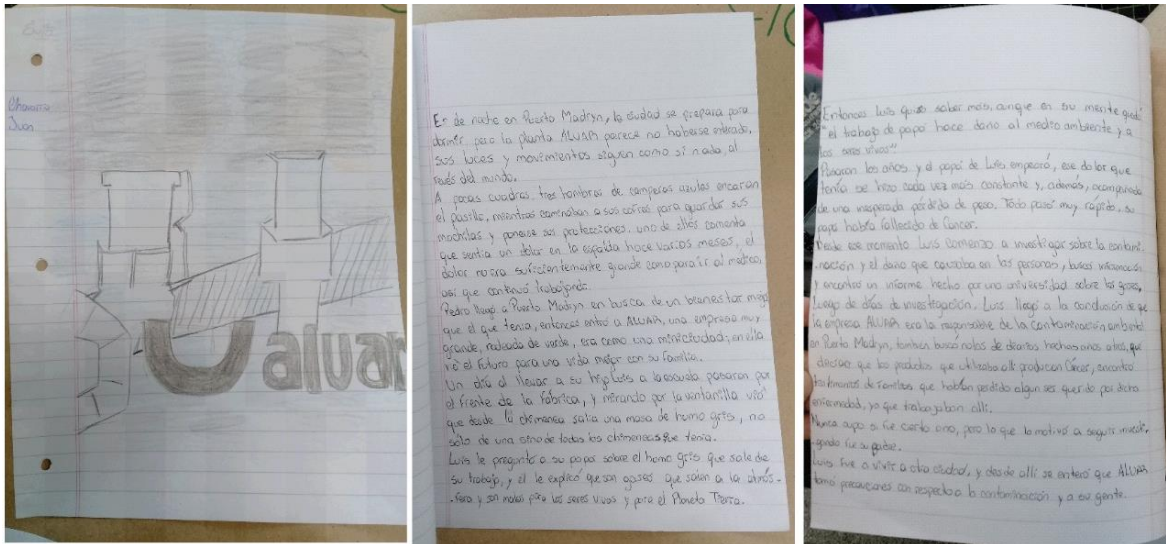 Chavarria
Juan
aluar
Es de noche en Puerto Madryn, la ciudad se prepara para
dormir pero la planta ALUAR parece no haberse enterado,
sus luces y movimientos siguen como si nada, al
revés del mundo.
A pocas cuadras tres hombres de camperas azules encaran
el pasillo, mientras caminaban a sus cofres para guardar sus
mochilas y ponerse sus protecciones. uno de ellos comenta
que sentía un dolor en la espalda hace varios meses, el
dolor no era suficientemente grande como para ir al medico,
así que continuó trabajando.
Pedro llegó a Puerto Madryn en busca de un bienestar mejor
que el que tenía, entonces entró a ALUAR, una empresa muy
grande, rodeada de verde, era como una miniciudad; en ella
vio el futuro para una vida mejor con su familia.
Un día al llevar a su hijo Luis a la escuela, pasaron por
el frente de la fábrica, y mirando por la ventanilla vió
que desde la chimenea salía una masa de humo gris, no
sólo de una sino de todas las chimeneas que tenía.
Luis le preguntó a su papá sobre el humo gris que sale de
su trabajo, y él le explicó que son gases que salen a la atmós-
-fera y son malos para los seres vivos y para el Planeta Tierra.
Entonces Luis quiso saber más, aunque en su mente quedó
"el trabajo de papá hace daño al medio ambiente y a
los seres vivos"
Pasaron los años y el papá de Luis empeoró, ese dolor que
tenía se hizo cada vez más constante y, además, acompañado
de una inesperada pérdida de peso. Todo pasó muy rápido, su
papá había fallecido de Cáncer.
Desde ese momento Luis comenzó a investigar sobre la contami-
-nación y el daño que causaba en las personas, buscó información
y encontró un informe hecho por una universidad sobre los gases,
luego de días de investigación. Luis llegó a la conclusión de que
la empresa ALUAR era la responsable de la contaminación ambiental
en Puerto Madryn, también buscó notas de diarios hechas años atrás, que
decían que los productos que utilizaba allí producían Cáncer, encontró
testimonios de familias que habían perdido algún ser querido por dicha
enfermedad, ya que trabajaban allí.
Nunca supo si fue cierto o no, pero lo que lo motivó a seguir investi-
-gando fue su padre.
Luis fue a vivir a otra ciudad, y desde allí se enteró que ALUAR
tomó precauciones con respecto a la contaminación y a su gente.